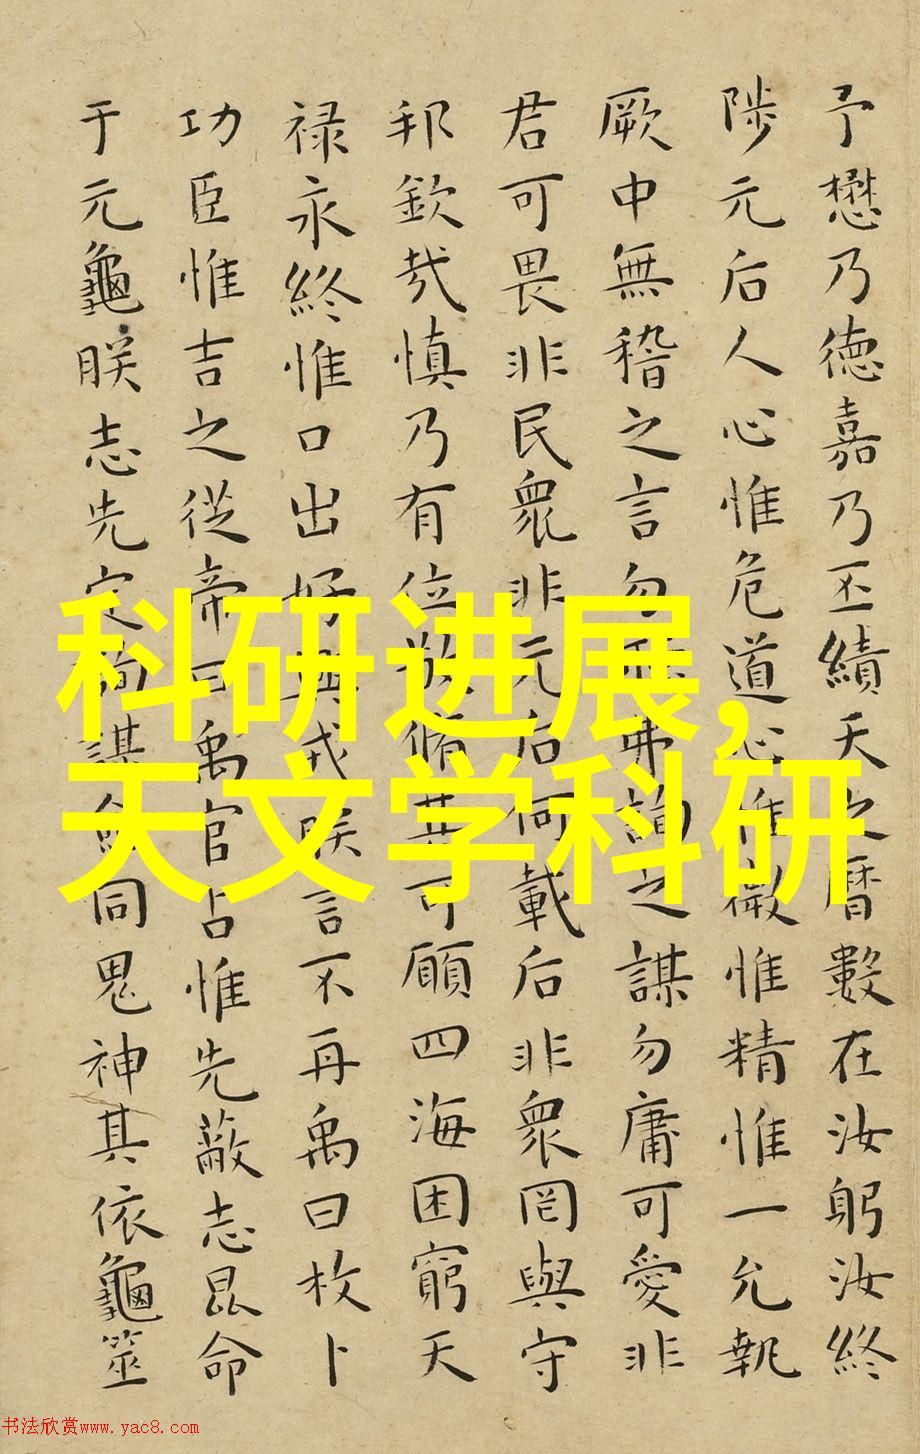 予懋乃德嘉乃丕績天之曆數在汝躬汝終
陟元后人心惟危道心惟微惟精惟一允執
厥中無稽之言勿聽弗詢之謀勿庸可愛非
君可畏非民衆非元后何載后非衆罔與守
邦欽哉慎乃有位敬脩其可願四海困窮天
禄永終惟口出好興戎朕言不再禹曰枚卜
功臣惟吉之從帝曰禹官占惟先蔽志昆命
于元龜朕志先定詢謀僉同鬼神其依龜筮
科研进展,
天文学科研
书法欣赏www.yac8.com